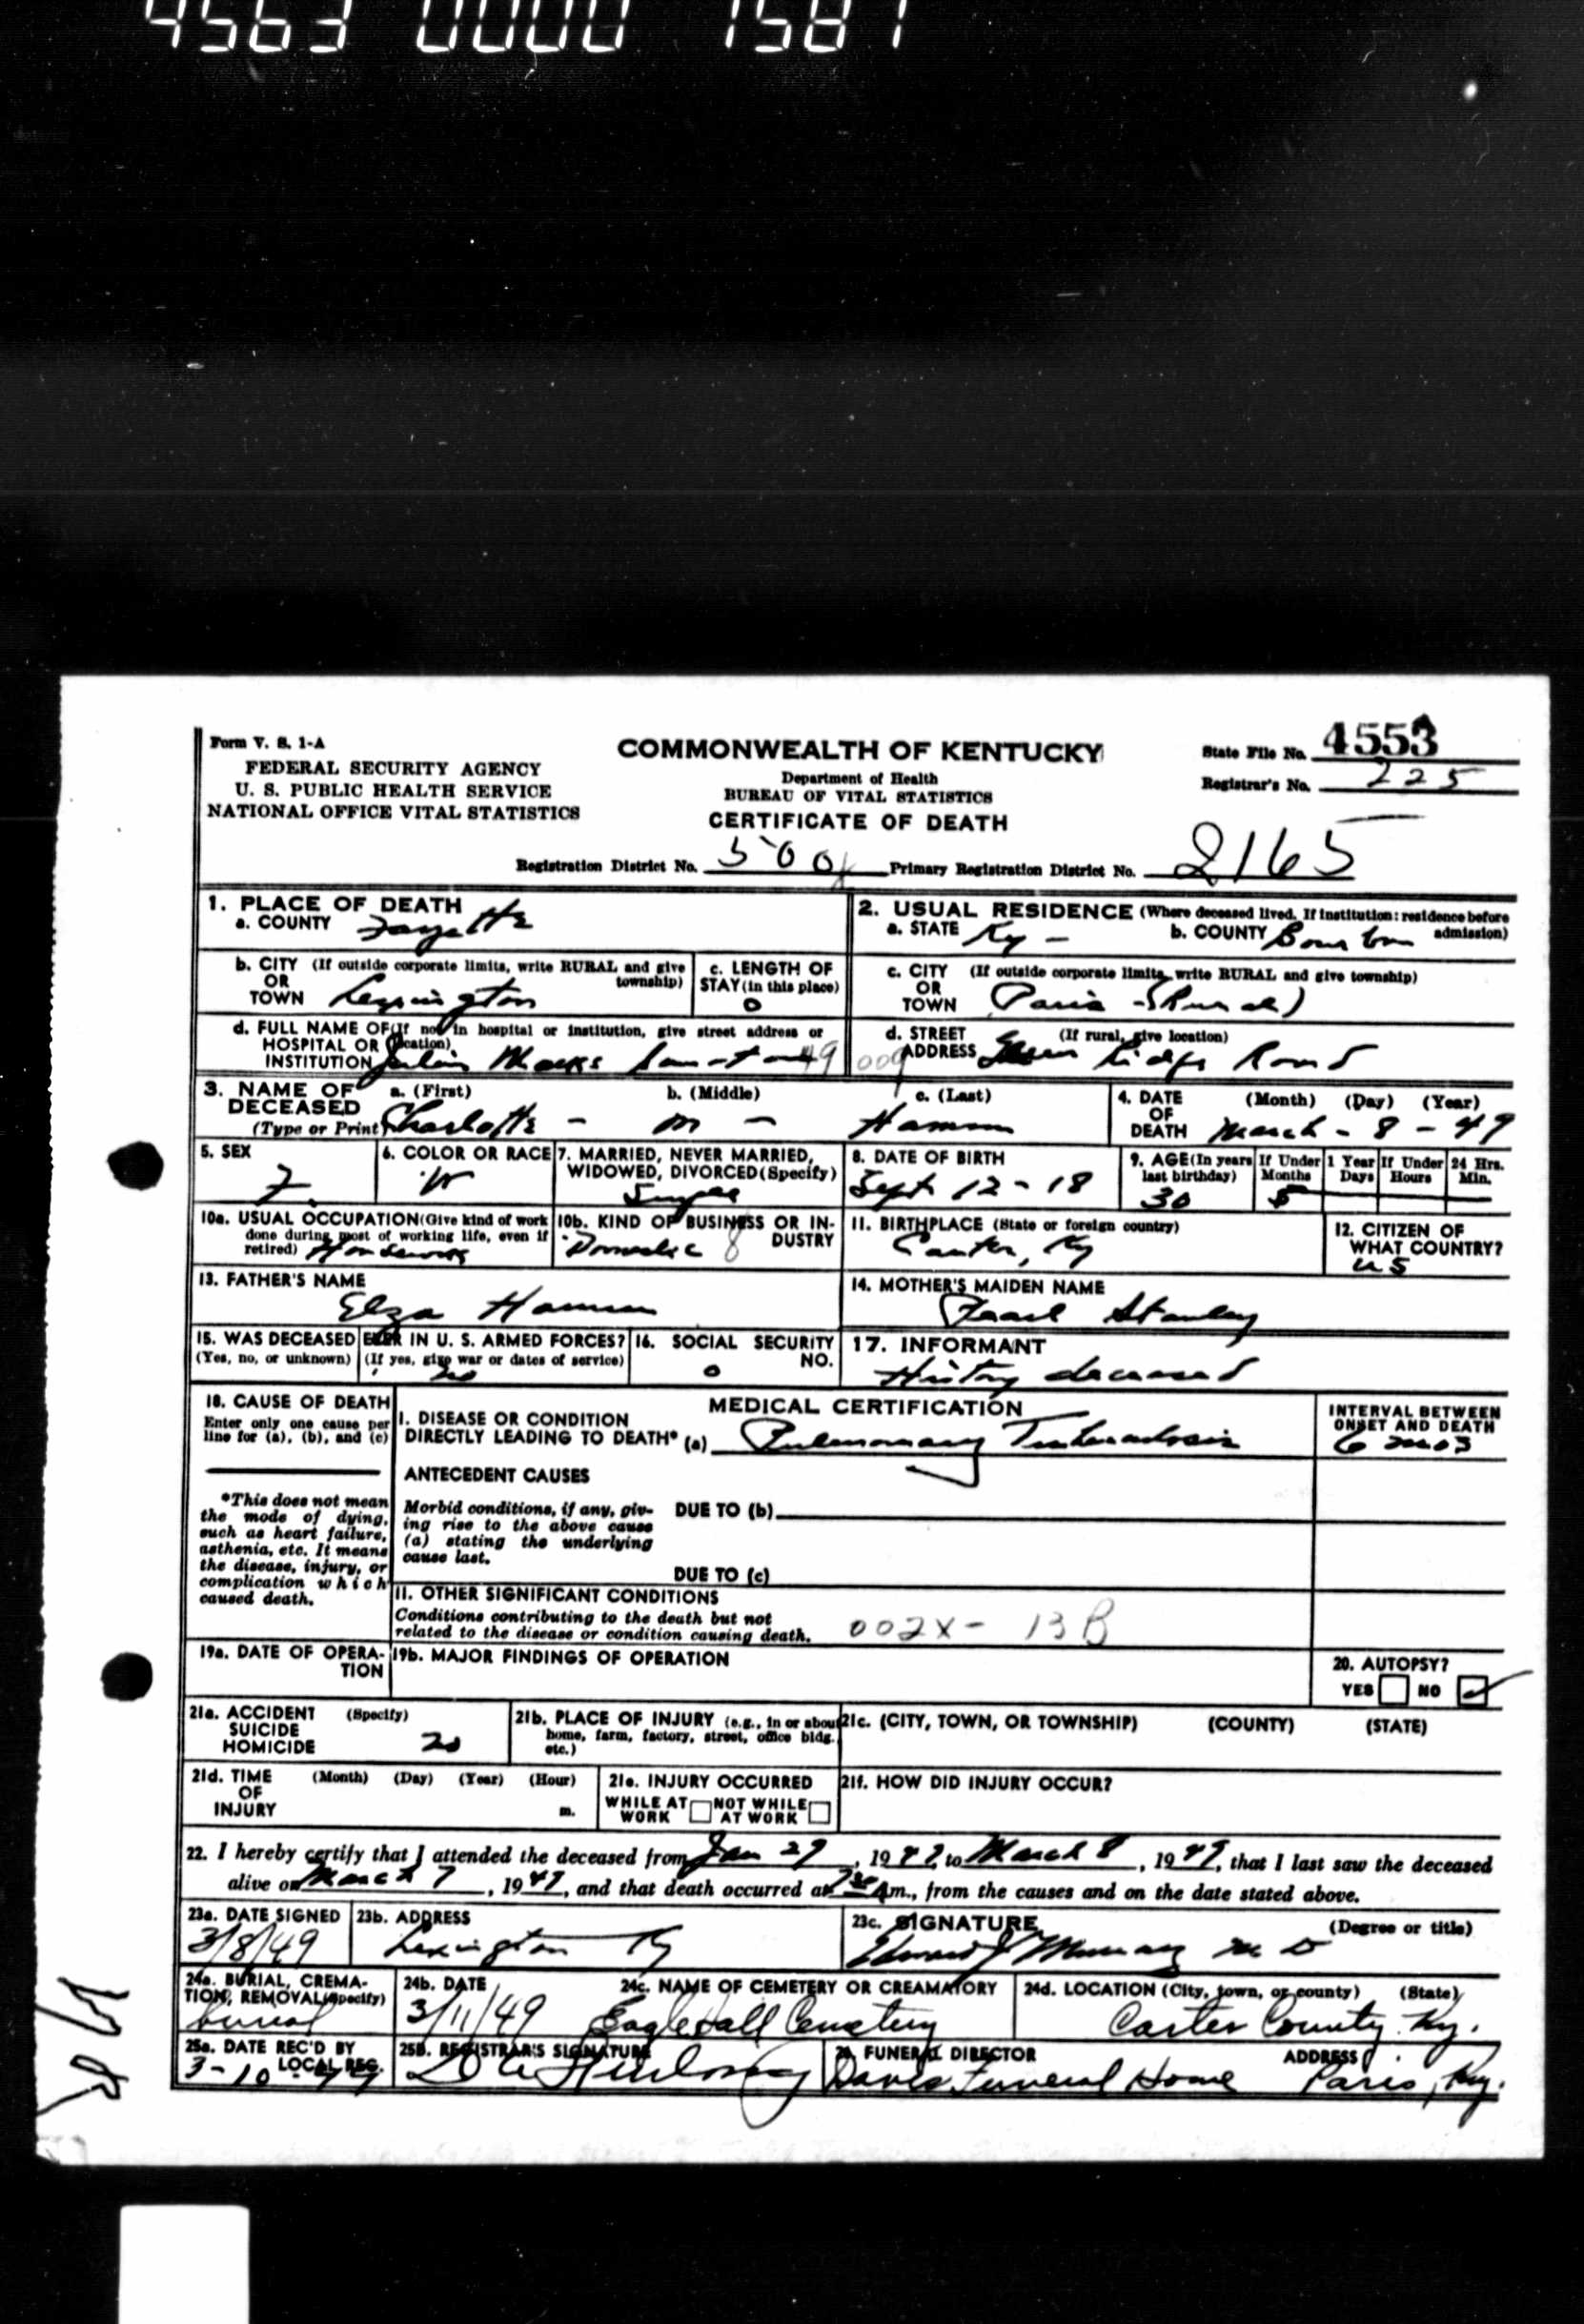 4563 0000 1581
Form V. S. 1-A
FEDERAL SECURITY AGENCY
U. S. PUBLIC HEALTH SERVICE
NATIONAL OFFICE VITAL STATISTICS
COMMONWEALTH OF KENTUCKY
Department of Health
BUREAU OF VITAL STATISTICS
CERTIFICATE OF DEATH
State File No. 4553
Registrar's No. 225
Registration District No. 500 Primary Registration District No. 2165
1. PLACE OF DEATH
a. COUNTY Fayette
2. USUAL RESIDENCE (Where deceased lived. If institution: residence before admission)
a. STATE Ky - b. COUNTY Bourbon
b. CITY (If outside corporate limits, write RURAL and give township)
OR
TOWN Lexington
c. LENGTH OF STAY (in this place)
0
c. CITY (If outside corporate limits, write RURAL and give township)
OR
TOWN Paris - (Rural)
d. FULL NAME OF (If not in hospital or institution, give street address or location)
HOSPITAL OR
INSTITUTION Julius Marks 49
d. STREET (If rural, give location)
ADDRESS 009 Ridge Road
3. NAME OF DECEASED
(Type or Print)
a. (First) b. (Middle) c. (Last)
Charlotte - M - Hamm
4. DATE OF DEATH (Month) (Day) (Year)
March - 8 - 49
5. SEX
F.
6. COLOR OR RACE
W
7. MARRIED, NEVER MARRIED, WIDOWED, DIVORCED (Specify)
Single
8. DATE OF BIRTH
Sept 12 - 18
9. AGE (In years last birthday)
30
If Under 1 Year
Months Days
5
If Under 24 Hrs.
Hours Min.
10a. USUAL OCCUPATION (Give kind of work done during most of working life, even if retired) Housework
10b. KIND OF BUSINESS OR INDUSTRY
Domestic 8
11. BIRTHPLACE (State or foreign country)
Carter, Ky
12. CITIZEN OF WHAT COUNTRY?
US
13. FATHER'S NAME
Elza Hamm
14. MOTHER'S MAIDEN NAME
Pearl Stanley
15. WAS DECEASED EVER IN U. S. ARMED FORCES?
(Yes, no, or unknown) (If yes, give war or dates of service)
no
16. SOCIAL SECURITY NO.
0
17. INFORMANT
History deceased
18. CAUSE OF DEATH
Enter only one cause per line for (a), (b), and (c)
*This does not mean the mode of dying, such as heart failure, asthenia, etc. It means the disease, injury, or complication which caused death.
MEDICAL CERTIFICATION
I. DISEASE OR CONDITION
DIRECTLY LEADING TO DEATH* (a) Pulmonary Tuberculosis
INTERVAL BETWEEN ONSET AND DEATH
6 mos
ANTECEDENT CAUSES
Morbid conditions, if any, giving rise to the above cause (a) stating the underlying cause last.
DUE TO (b)
DUE TO (c)
II. OTHER SIGNIFICANT CONDITIONS
Conditions contributing to the death but not related to the disease or condition causing death.
002X - 13B
19a. DATE OF OPERATION
19b. MAJOR FINDINGS OF OPERATION
20. AUTOPSY?
YES NO
21a. ACCIDENT (Specify)
SUICIDE
HOMICIDE no
21b. PLACE OF INJURY (e.g., in or about home, farm, factory, street, office bldg., etc.)
21c. (CITY, TOWN, OR TOWNSHIP) (COUNTY) (STATE)
21d. TIME OF INJURY (Month) (Day) (Year) (Hour)
m.
21e. INJURY OCCURRED
WHILE AT WORK NOT WHILE AT WORK
21f. HOW DID INJURY OCCUR?
22. I hereby certify that I attended the deceased from Jan 29, 1949, to March 8, 1949, that I last saw the deceased
alive on March 7, 1949, and that death occurred at 7 30 Am., from the causes and on the date stated above.
23a. DATE SIGNED
3/8/49
23b. ADDRESS
Lexington Ky
23c. SIGNATURE (Degree or title)
Edward J Murray MD
24a. BURIAL, CREMATION, REMOVAL (Specify)
burial
24b. DATE
3/11/49
24c. NAME OF CEMETERY OR CREAMATORY
Cemetery
24d. LOCATION (City, town, or county) (State)
Carter County, Ky.
25a. DATE REC'D BY LOCAL REG.
3-10-49
25B. REGISTRAR'S SIGNATURE
FUNERAL DIRECTOR ADDRESS
Davis Funeral Home Paris, Ky.